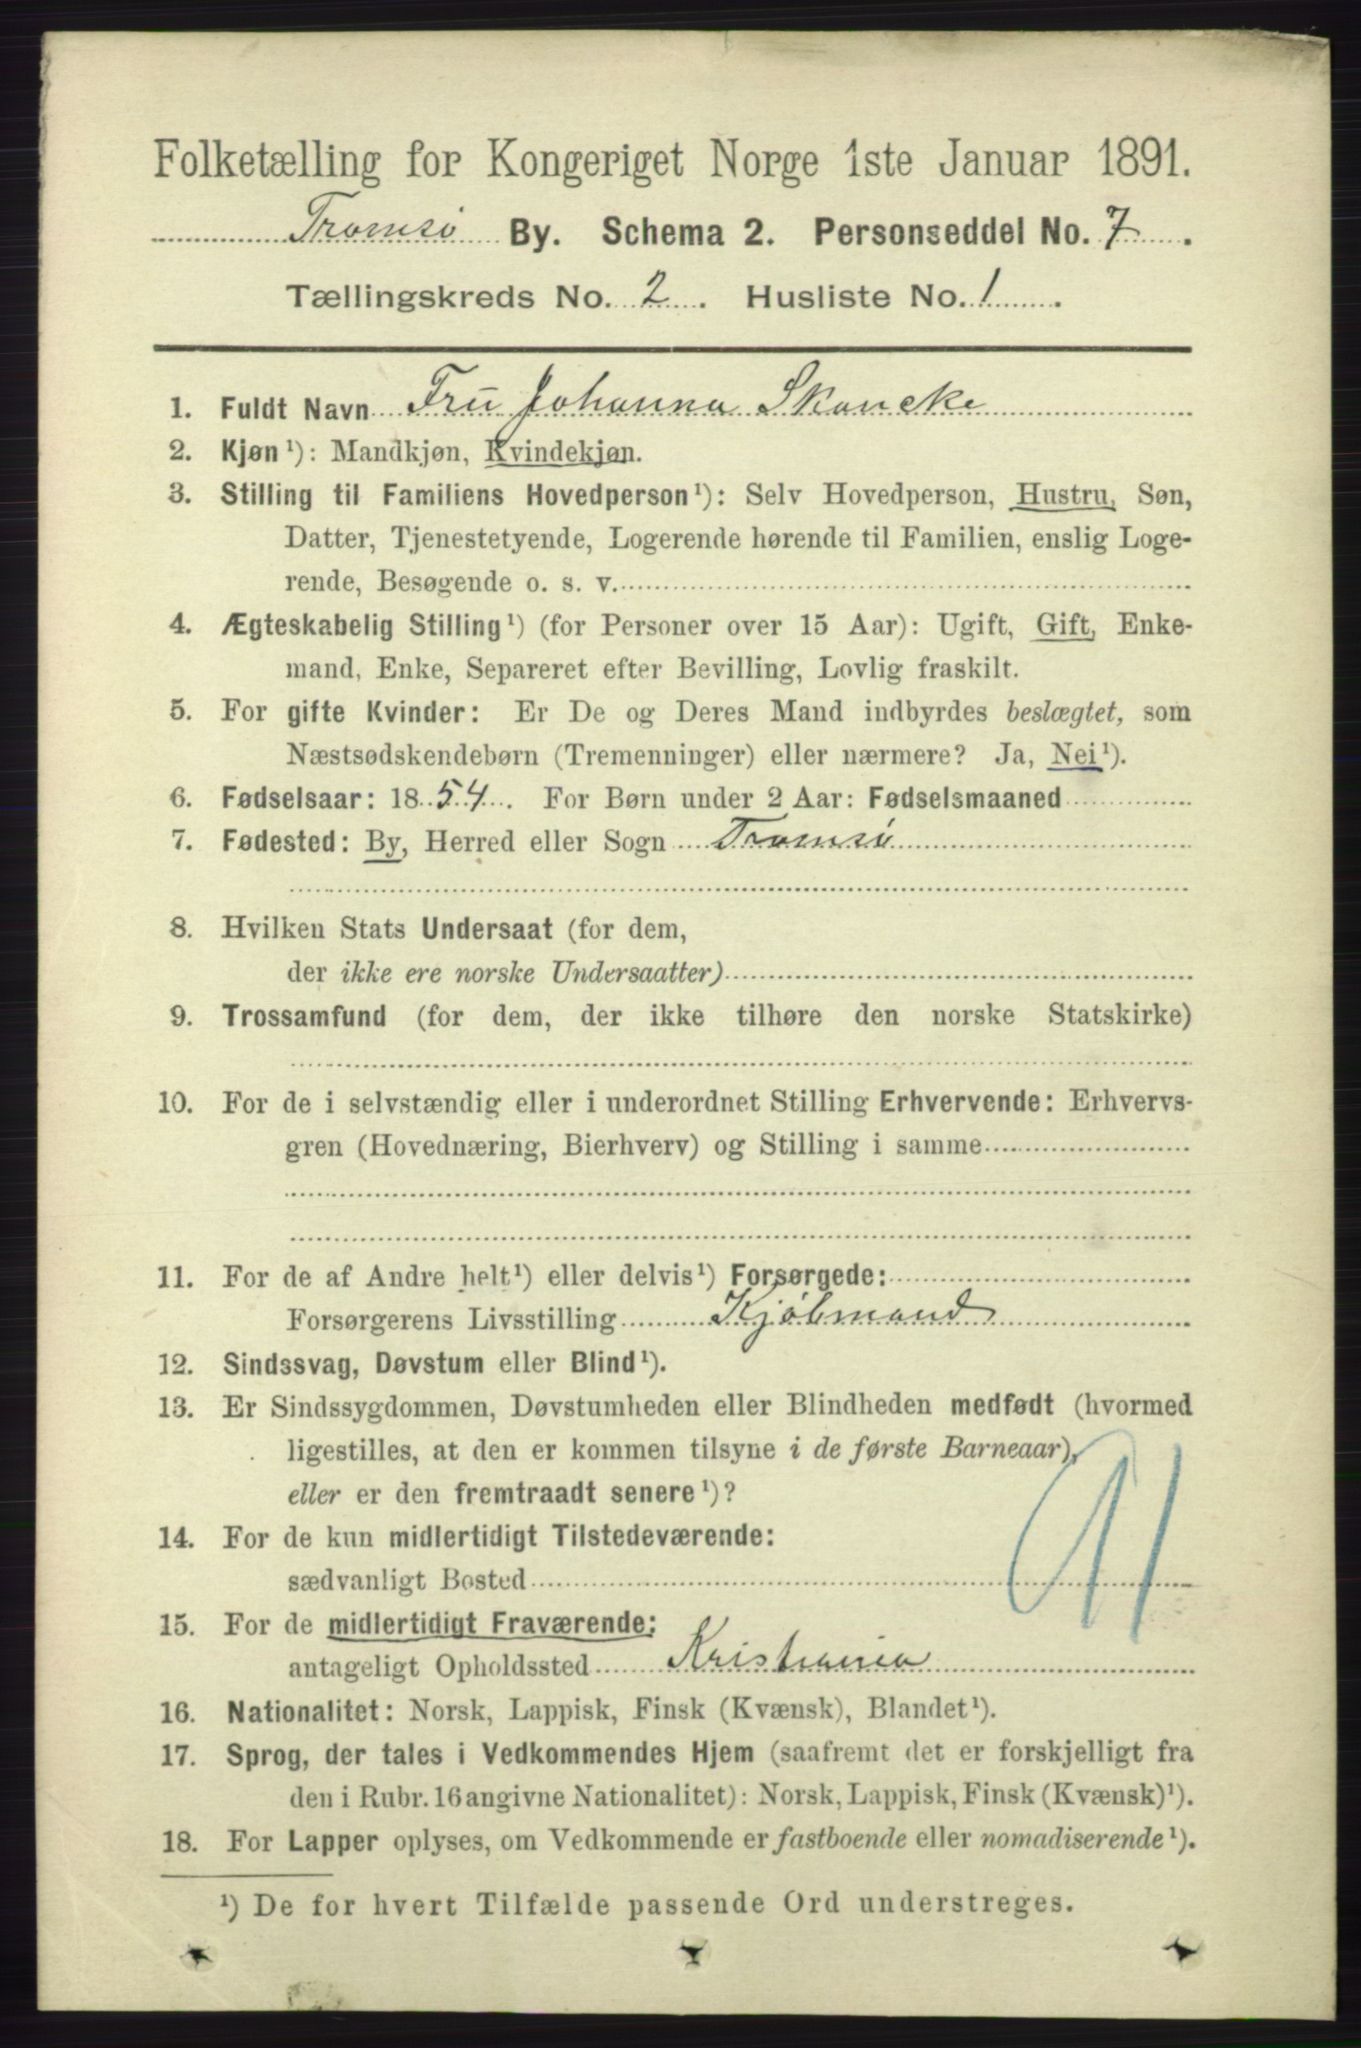 Folketælling for Kongeriget Norge 1ste Januar 1891.
Tromsø By. Schema 2. Personseddel No. 7.
Tællingskreds No. 2. Husliste No. 1.
1. Fuldt Navn Fru Johanna Skancke
2. Kjøn¹): Mandkjøn, Kvindekjøn.
3. Stilling til Familiens Hovedperson¹): Selv Hovedperson, Hustru, Søn,
Datter, Tjenestetyende, Logerende hørende til Familien, enslig Loge-
rende, Besøgende o. s. v.
4. Ægteskabelig Stilling¹) (for Personer over 15 Aar): Ugift, Gift, Enke-
mand, Enke, Separeret efter Bevilling, Lovlig fraskilt.
5. For gifte Kvinder: Er De og Deres Mand indbyrdes beslægtet, som
Næstsødskendebørn (Tremenninger) eller nærmere? Ja, Nei¹).
6. Fødselsaar: 1854. For Børn under 2 Aar: Fødselsmaaned
7. Fødested: By, Herred eller Sogn Tromsø
8. Hvilken Stats Undersaat (for dem,
der ikke ere norske Undersaatter)
9. Trossamfund (for dem, der ikke tilhøre den norske Statskirke)
10. For de i selvstændig eller i underordnet Stilling Erhvervende: Erhvervs-
gren (Hovednæring, Bierhverv) og Stilling i samme
11. For de af Andre helt¹) eller delvis¹) Forsørgede:
Forsørgerens Livsstilling Kjøbmand
12. Sindssvag, Døvstum eller Blind¹).
13. Er Sindssygdommen, Døvstumheden eller Blindheden medfødt (hvormed
ligestilles, at den er kommen tilsyne i de første Barneaar),
eller er den fremtraadt senere¹)?
91
14. For de kun midlertidigt Tilstedeværende:
sædvanligt Bosted
15. For de midlertidigt Fraværende:
antageligt Opholdssted Kristiania
16. Nationalitet: Norsk, Lappisk, Finsk (Kvænsk), Blandet¹).
17. Sprog, der tales i Vedkommendes Hjem (saafremt det er forskjelligt fra
den i Rubr. 16 angivne Nationalitet): Norsk, Lappisk, Finsk (Kvænsk)¹).
18. For Lapper oplyses, om Vedkommende er fastboende eller nomadiserende¹).
¹) De for hvert Tilfælde passende Ord understreges.